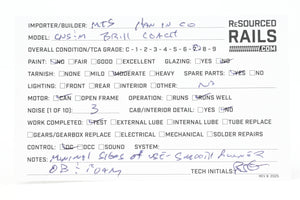 IMPORTER/BUILDER: MTS
RESOURCED
RAILS
.COM
MODEL: BRILL COACH
OVERALL CONDITION/TCA GRADE: C-1-2-3-4-5-6-7-8-9
PAINT: FAIR GOOD EXCELLENT GLOSSY FLAT
TARNISH: NONE MILD MODERATE HEAVY SPARE PARTS: YES NO
LIGHTING: FRONT REAR INTERIOR OTHER: NO
MOTOR: CAN OPEN FRAME OPERATION: RUNS RUNS WELL
NOISE (1 OF 10) 3 CAB/INTERIOR DETAIL: YES NO
WORK COMPLETED: TEST EXTERNAL LUBE INTERNAL LUBE TUBE REPLACE
GEARS/GEARBOX REPLACE ELECTRICAL MECHANICAL SOLDER REPAIRS
CONTROL: DC DCC SOUND SYSTEM:
NOTES: MINIMAL SIGNS OF USE - SMOOTH RUNNER
OB : FOAM TECH INITIALS: